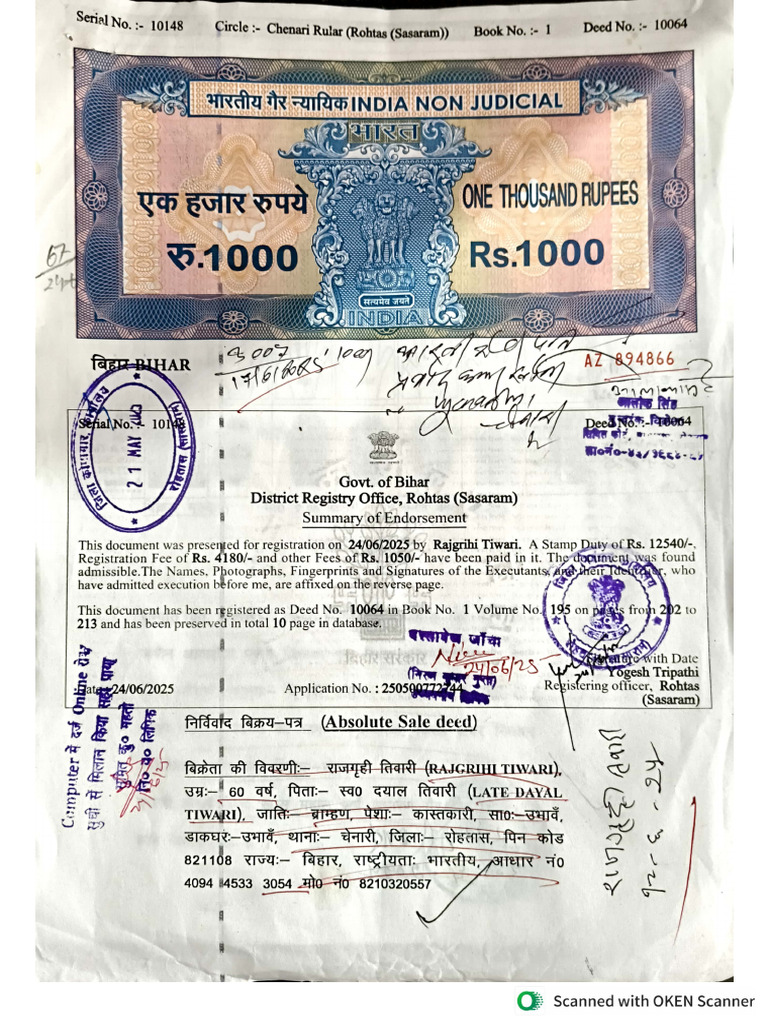 Serial No. :- 10148 Circle :- Chenari Rular (Rohtas (Sasaram)) Book No. :- 1 Deed No. :- 10064
भारतीय गैर न्यायिक INDIA NON JUDICIAL
भारत
एक हजार रुपये ONE THOUSAND RUPEES
रु.1000 Rs.1000
सत्यमेव जयते
INDIA
बिहार BIHAR
AZ 894866
जिला कोषागार कार्यालय
21 MAY 2025
रोहतास (सासाराम)
आलोक सिंह
Serial No. :- 10148 Deed No. :- 10064
Govt. of Bihar
District Registry Office, Rohtas (Sasaram)
Summary of Endorsement
This document was presented for registration on 24/06/2025 by Rajgrihi Tiwari. A Stamp Duty of Rs. 12540/-.
Registration Fee of Rs. 4180/- and other Fees of Rs. 1050/- have been paid in it. The document was found
admissible.The Names, Photographs, Fingerprints and Signatures of the Executants, and their Identifier, who
have admitted execution before me, are affixed on the reverse page.
This document has been registered as Deed No. 10064 in Book No. 1 Volume No. 195 on pages from 202 to
213 and has been preserved in total 10 page in database.
दस्तावेज जाँचा
24/06/25
Signature with Date
Date: 24/06/2025 Application No. : 250500772744 Yogesh Tripathi
Registering officer, Rohtas
(Sasaram)
Computer में दर्ज Online
सूची से मिलान किया सही पाया
निर्विवाद बिक्रय–पत्र (Absolute Sale deed)
बिक्रेता की विवरणीः– राजगृही तिवारी (RAJGRIHI TIWARI),
उम्रः– 60 वर्ष, पिताः– स्व0 दयाल तिवारी (LATE DAYAL
TIWARI), जातिः– ब्राम्हण, पेशाः– कास्तकारी, सा0ः–उभावँ,
डाकघरः–उभावँ, थानाः– चेनारी, जिलाः– रोहतास, पिन कोड
821108 राज्यः– बिहार, राष्ट्रीयताः भारतीय, आधार नं0
4094 4533 3054 मो0 नं0 8210320557
Scanned with OKEN Scanner